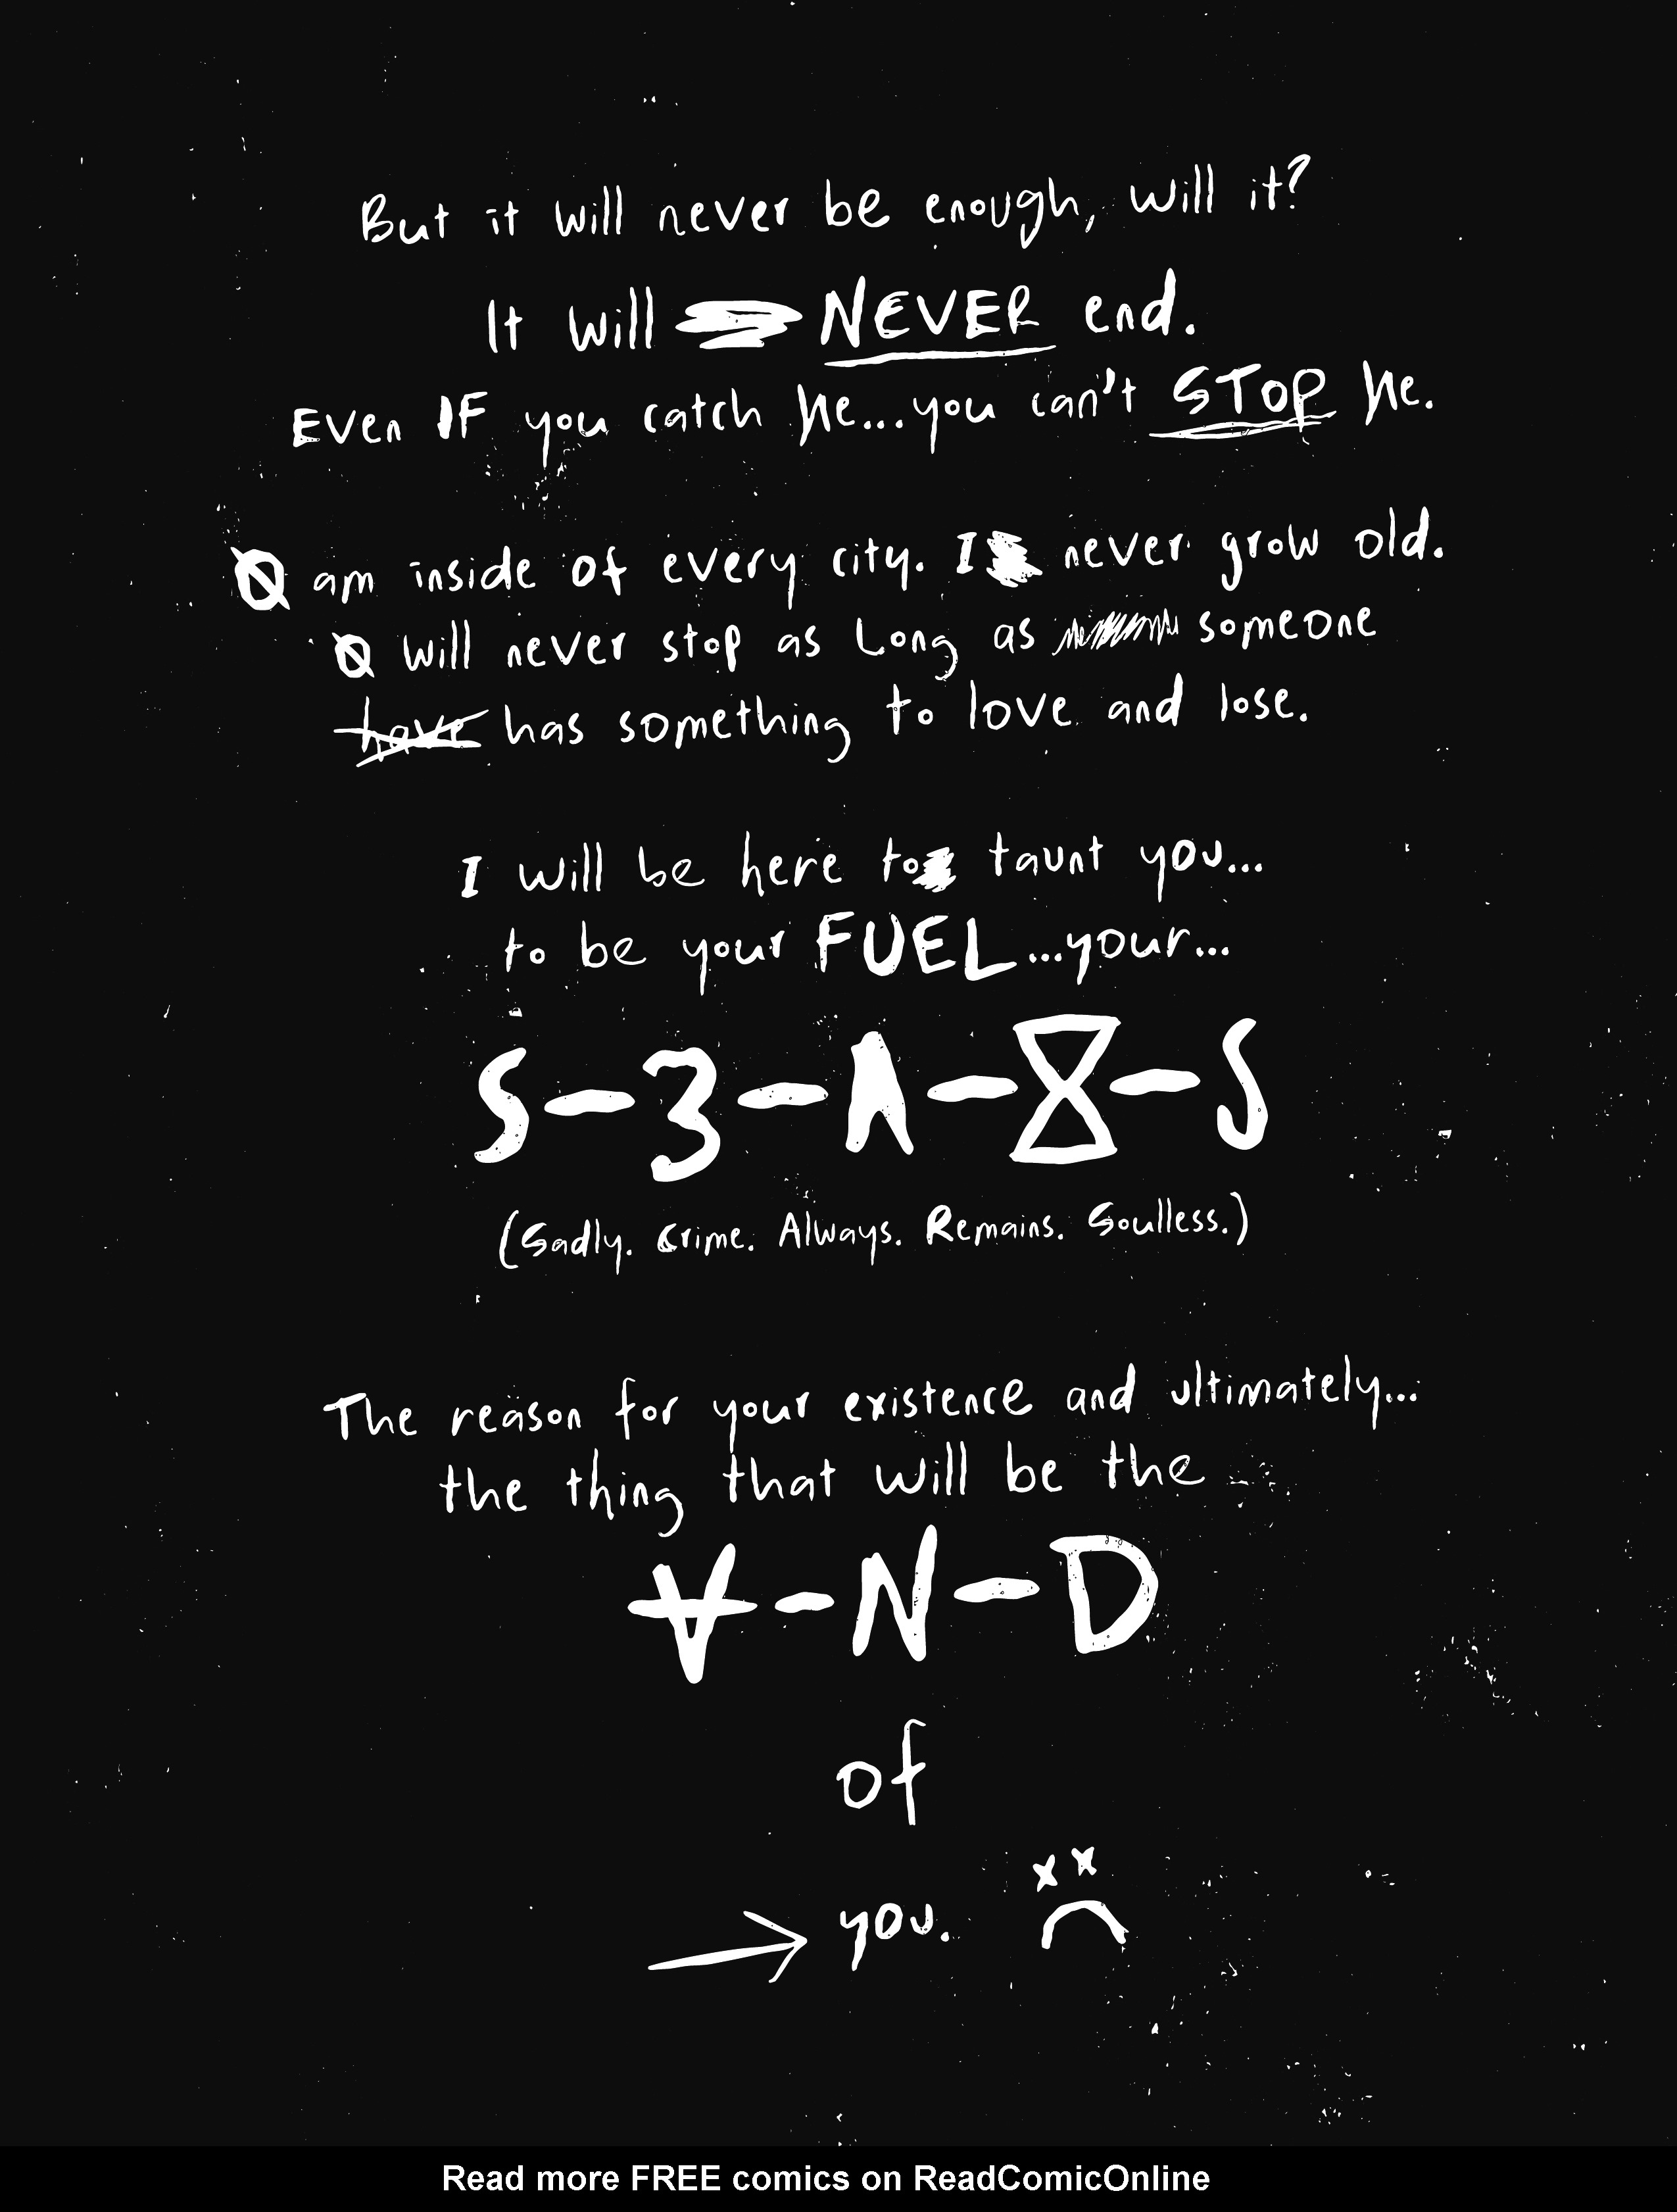 But it will never be enough, will it?
It will NEVER end.
Even IF you catch Me...you can't STOP Me.
am inside of every city. I never grow old.
will never stop as Long as someone
have has something to love and lose.
I will be here to taunt you...
to be your FUEL...your...
S-3-A-8-S
(Sadly. Crime. Always. Remains. Soulless.)
The reason for your existence and ultimately...
the thing that will be the
∀-N-D
of
→ you.
Read more FREE comics on ReadComicOnline